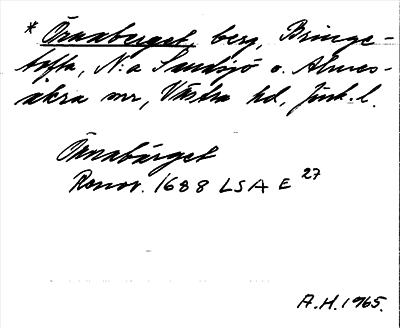 * Örnaberget, berg, Bringe-
tofta, N:a Sandsjö o. Almes-
åkra snr, Västra hd, Jönk. l.
Örnabärget
Renov. 1688 LSA E 27
A.H. 1965.